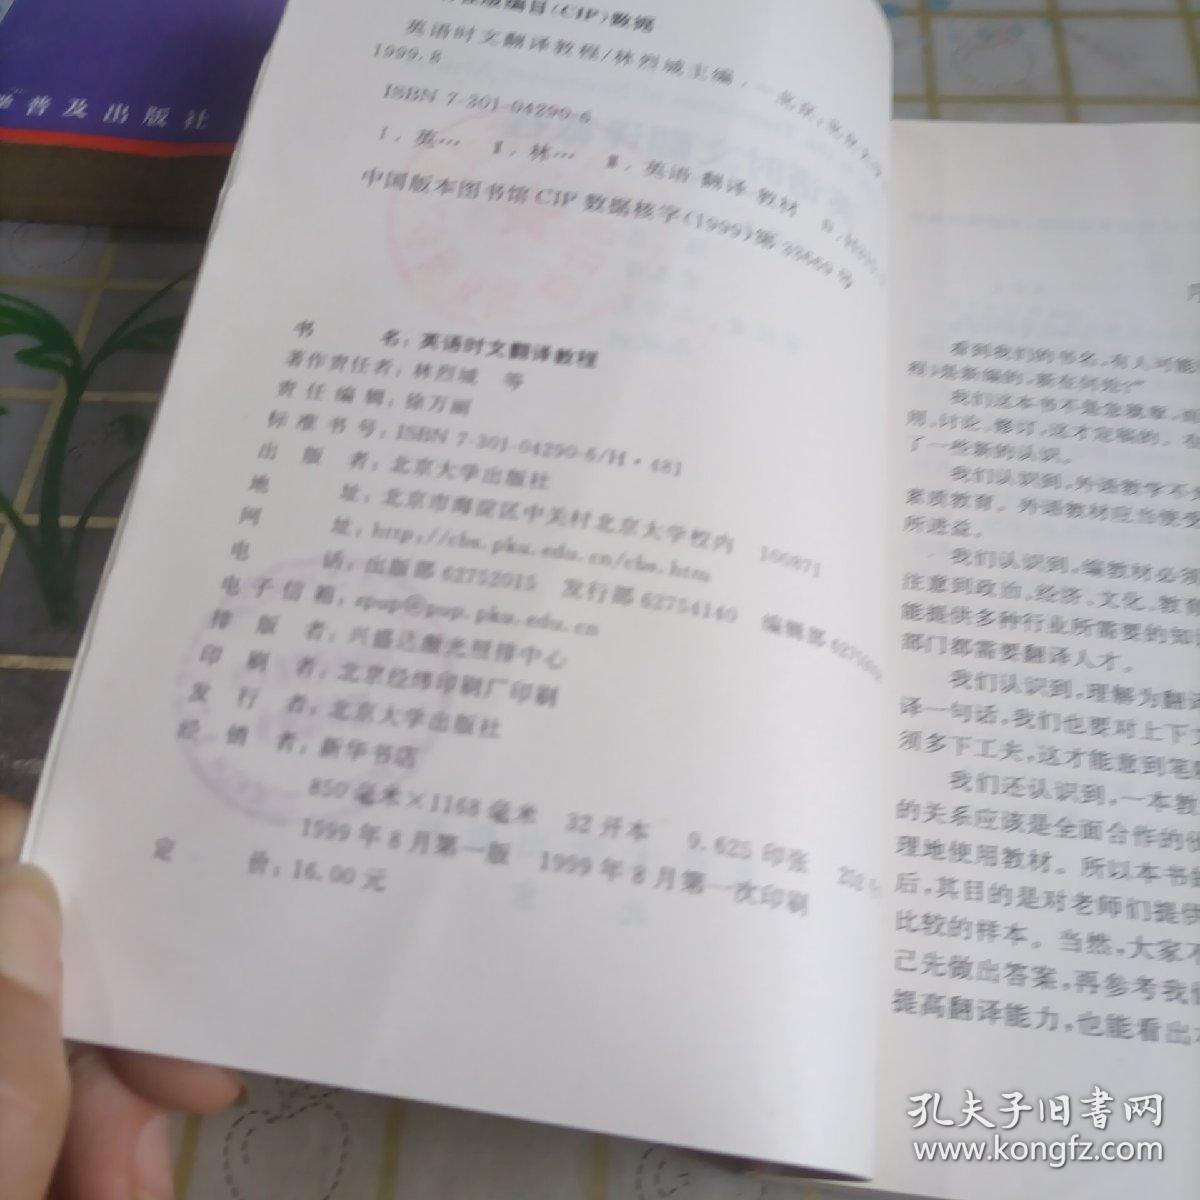 普及出版社
编目(CIP)数据
英语时文翻译教程/林烈城主编.—北京:北京大学
1999.8
ISBN 7-301-04290-6
Ⅰ.英… Ⅱ.林… Ⅲ.英语-翻译-教材
中国版本图书馆CIP数据核字(1999)第33669号
书 名:英语时文翻译教程
著作责任者:林烈城 等
责任编辑:徐万丽
标准书号:ISBN 7-301-04290-6/H·481
出版者:北京大学出版社
地 址:北京市海淀区中关村北京大学校内 100871
网 址:http://cbs.pku.edu.cn/cbs.htm
电 话:出版部62752015 发行部62754140 编辑部
电子信箱:zpup@pup.pku.edu.cn
排版者:兴盛达激光照排中心
印刷者:北京经纬印刷厂印刷
发行者:北京大学出版社
经销者:新华书店
850毫米×1168毫米 32开本 9.625印张
1999年8月第一版 1999年8月第一次印刷
定 价:16.00元
看到我们的书名,有人可能
程)是新编的,新在何处?”
我们这本书不是急就章,
用,讨论,修订,这才定稿的。
了一些新的认识。
我们认识到,外语教学不
素质教育。外语教材应当使受
所进益。
我们认识到,编教材必须
注意到政治,经济,文化,教育
能提供多种行业所需要的知
部门都需要翻译人才。
我们认识到,理解为翻译
译一句话,我们也要对上下文
须多下工夫,这才能意到笔
我们还认识到,一本教
的关系应该是全面合作的
理地使用教材。所以本书
后,其目的是对老师们提供
比较的样本。当然,大家不
己先做出答案,再参考我们
提高翻译能力,也能看出
孔夫子旧书网
www.kongfz.com